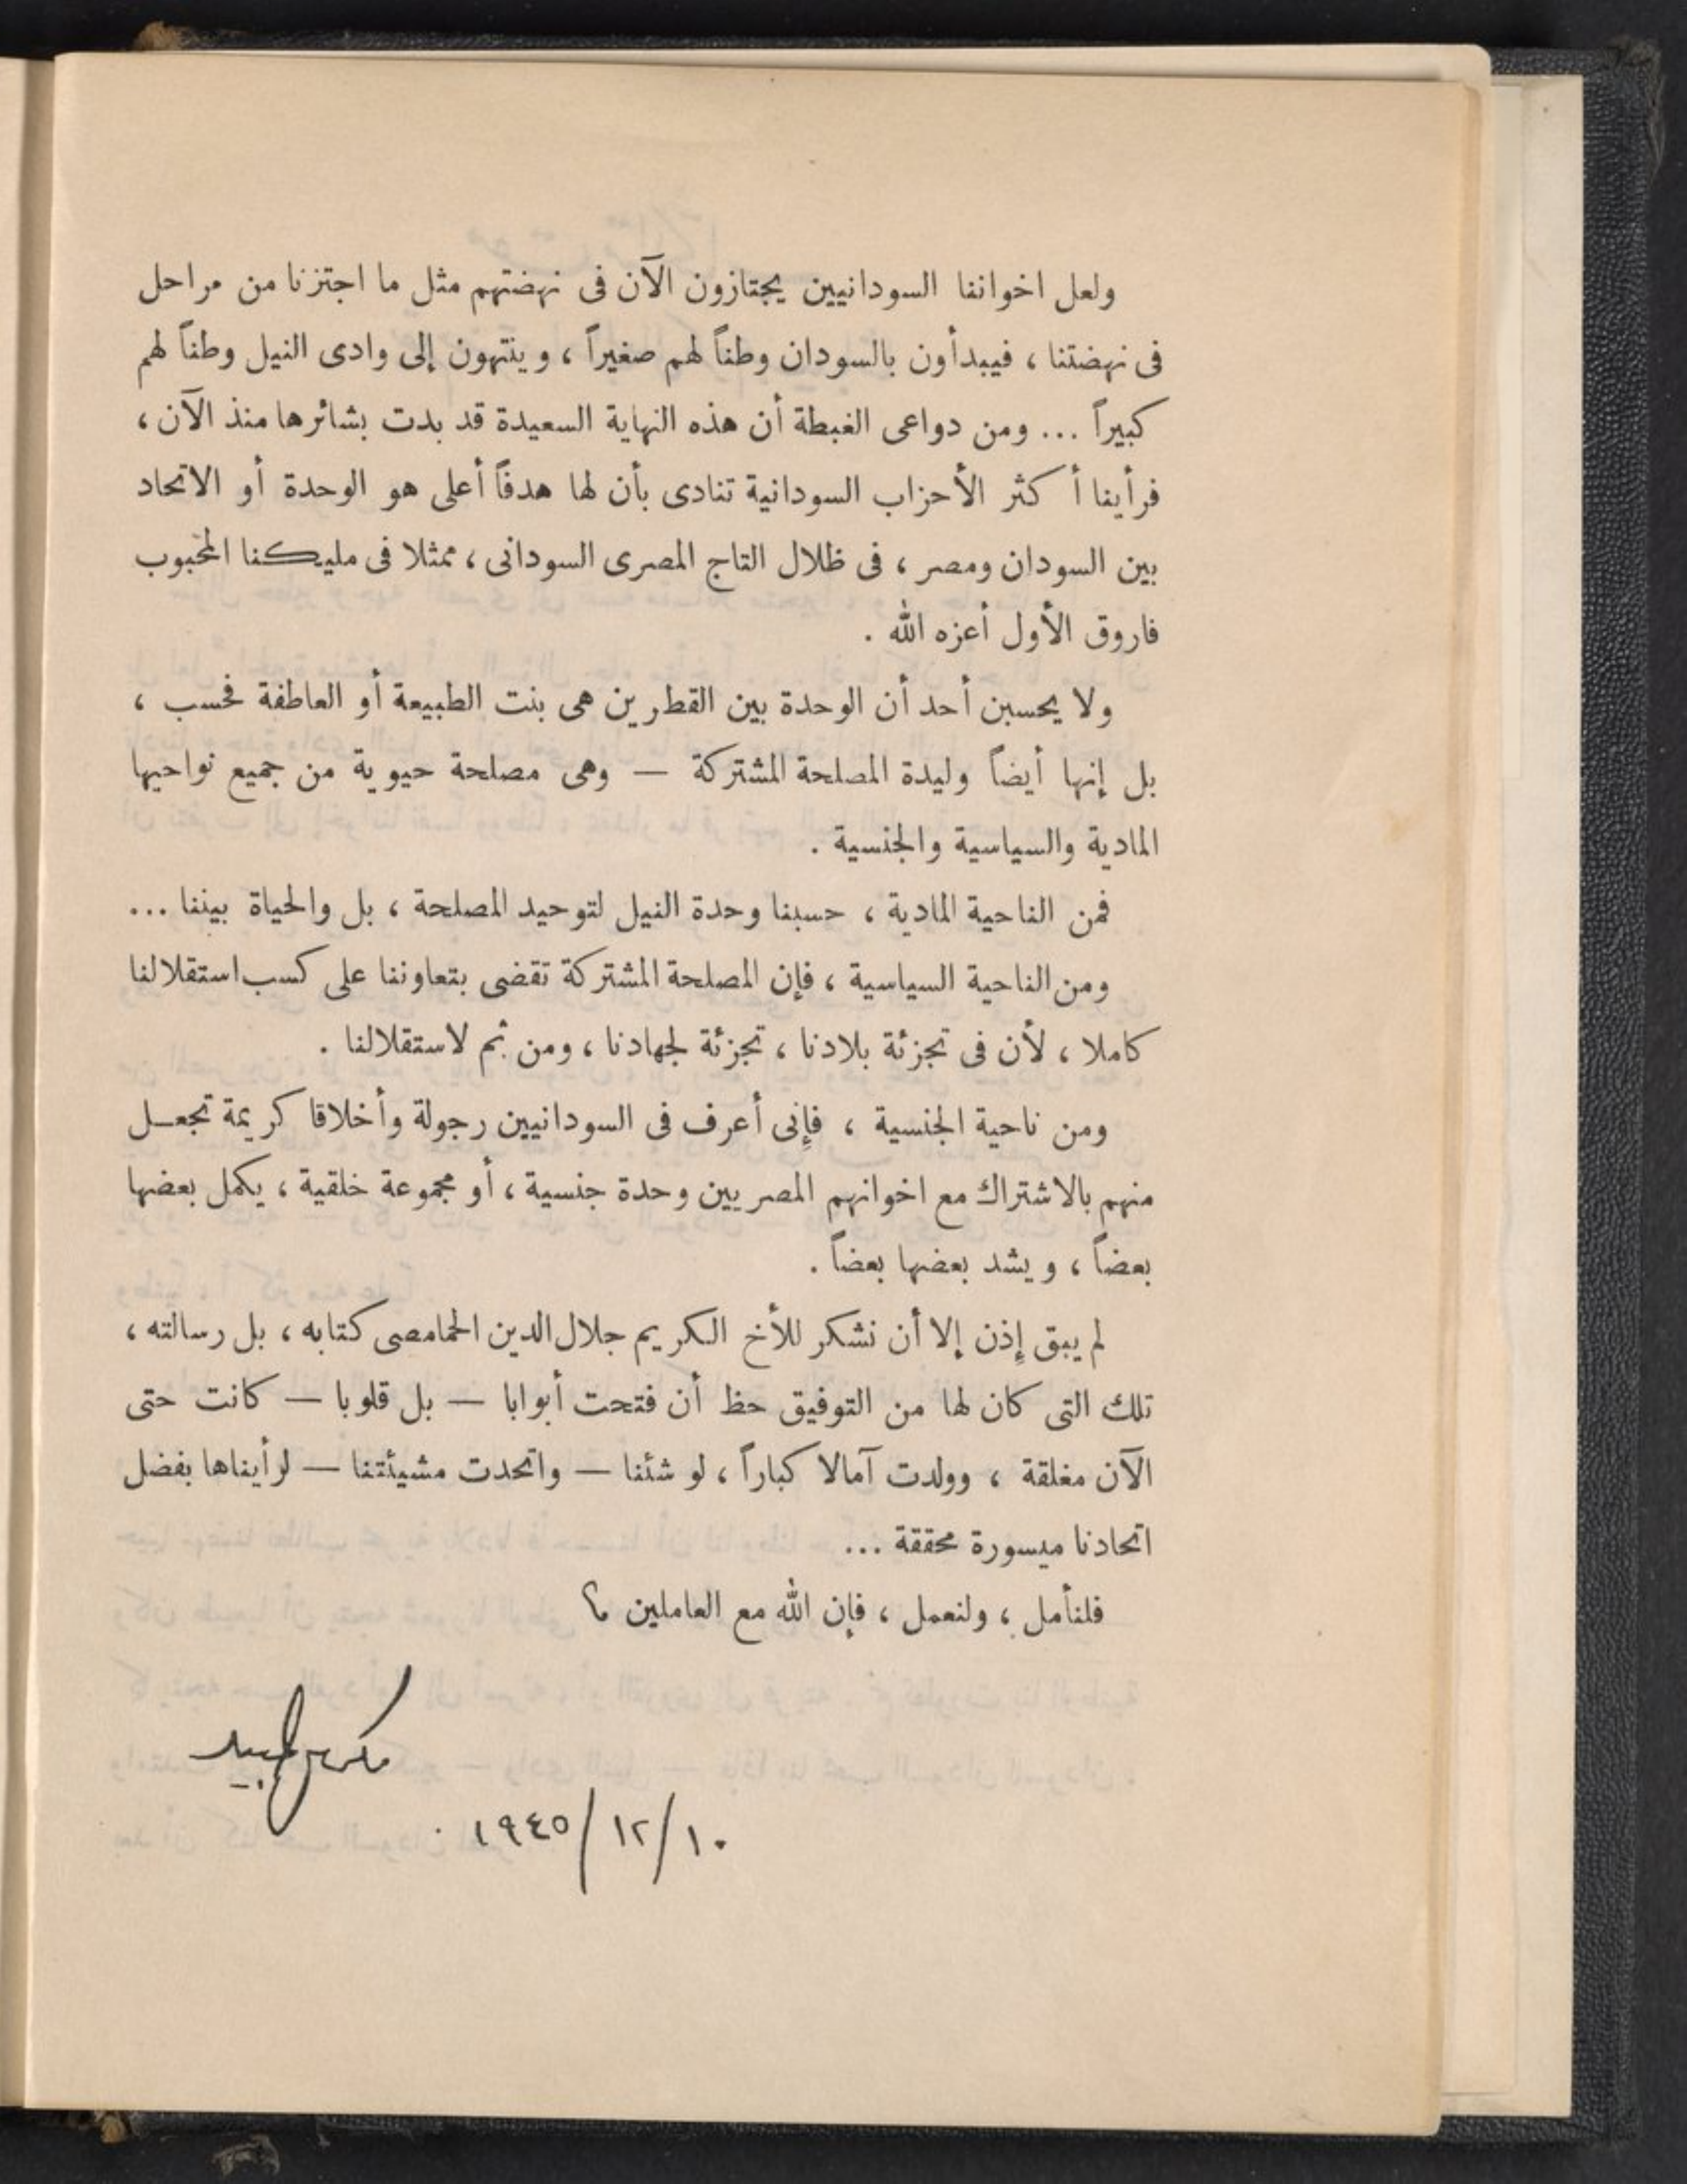 ولعل اخواننا السودانيين يجتازون الآن فى نهضتهم مثل ما اجتزنا من مراحل
فى نهضتنا ، فيبدأون بالسودان وطناً لهم صغيراً ، وينتهون إلى وادى النيل وطناً لهم
كبيراً ... ومن دواعى الغبطة أن هذه النهاية السعيدة قد بدت بشائرها منذ الآن ،
فرأينا أكثر الأحزاب السودانية تنادى بأن لها هدفاً أعلى هو الوحدة أو الاتحاد
بين السودان ومصر ، فى ظلال التاج المصرى السودانى ، ممثلا فى مليكنا المحبوب
فاروق الأول أعزه الله .
ولا يحسبن أحد أن الوحدة بين القطرين هى بنت الطبيعة أو العاطفة فحسب ،
بل إنها أيضاً وليدة المصلحة المشتركة — وهى مصلحة حيوية من جميع نواحيها
المادية والسياسية والجنسية .
فمن الناحية المادية ، حسبنا وحدة النيل لتوحيد المصلحة ، بل والحياة بيننا ...
ومن الناحية السياسية ، فإن المصلحة المشتركة تقضى بتعاوننا على كسب استقلالنا
كاملا ، لأن فى تجزئة بلادنا ، تجزئة لجهادنا ، ومن ثم لاستقلالنا .
ومن ناحية الجنسية ، فإنى أعرف فى السودانيين رجولة وأخلاقا كريمة تجعـل
منهم بالاشتراك مع اخوانهم المصريين وحدة جنسية ، أو مجموعة خلقية ، يكمل بعضها
بعضاً ، ويشد بعضها بعضاً .
لم يبق إذن إلا أن نشكر للأخ الكريم جلال الدين الحمامصى كتابه ، بل رسالته ،
تلك التى كان لها من التوفيق حظ أن فتحت أبوابا — بل قلوبا — كانت حتى
الآن مغلقة ، وولدت آمالا كباراً ، لو شئنا — واتحدت مشيئتنا — لرأيناها بفضل
اتحادنا ميسورة محققة ...
فلنأمل ، ولنعمل ، فإن الله مع العاملين ؟
مكرم عبيد
١٠/١٢/١٩٤٥ .